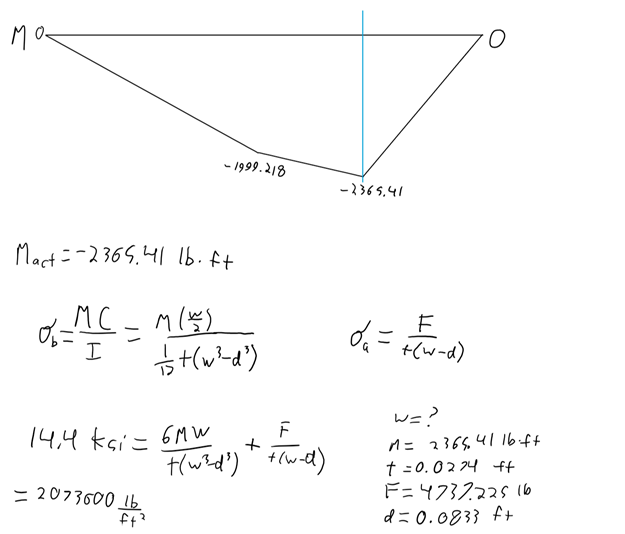 M 0 0
-1999.218
-2365.41
Mact = -2365.41 lb·ft
σb = MC/I = M(w/2) / (1/12 t(w³-d³))
σa = F / t(w-d)
14.4 ksi = 6MW / t(w³-d³) + F / t(w-d)
= 2073600 lb/ft²
w = ?
M = 2365.41 lb·ft
t = 0.0274 ft
F = 4737.225 lb
d = 0.0833 ft